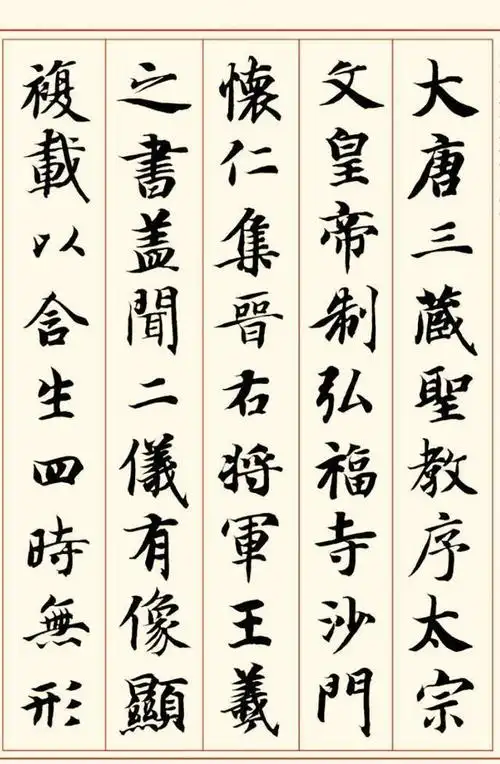 大唐三藏聖教序太宗
文皇帝制弘福寺沙門
懷仁集晉右將軍王羲
之書蓋聞二儀有像顯
複載以含生四時無形